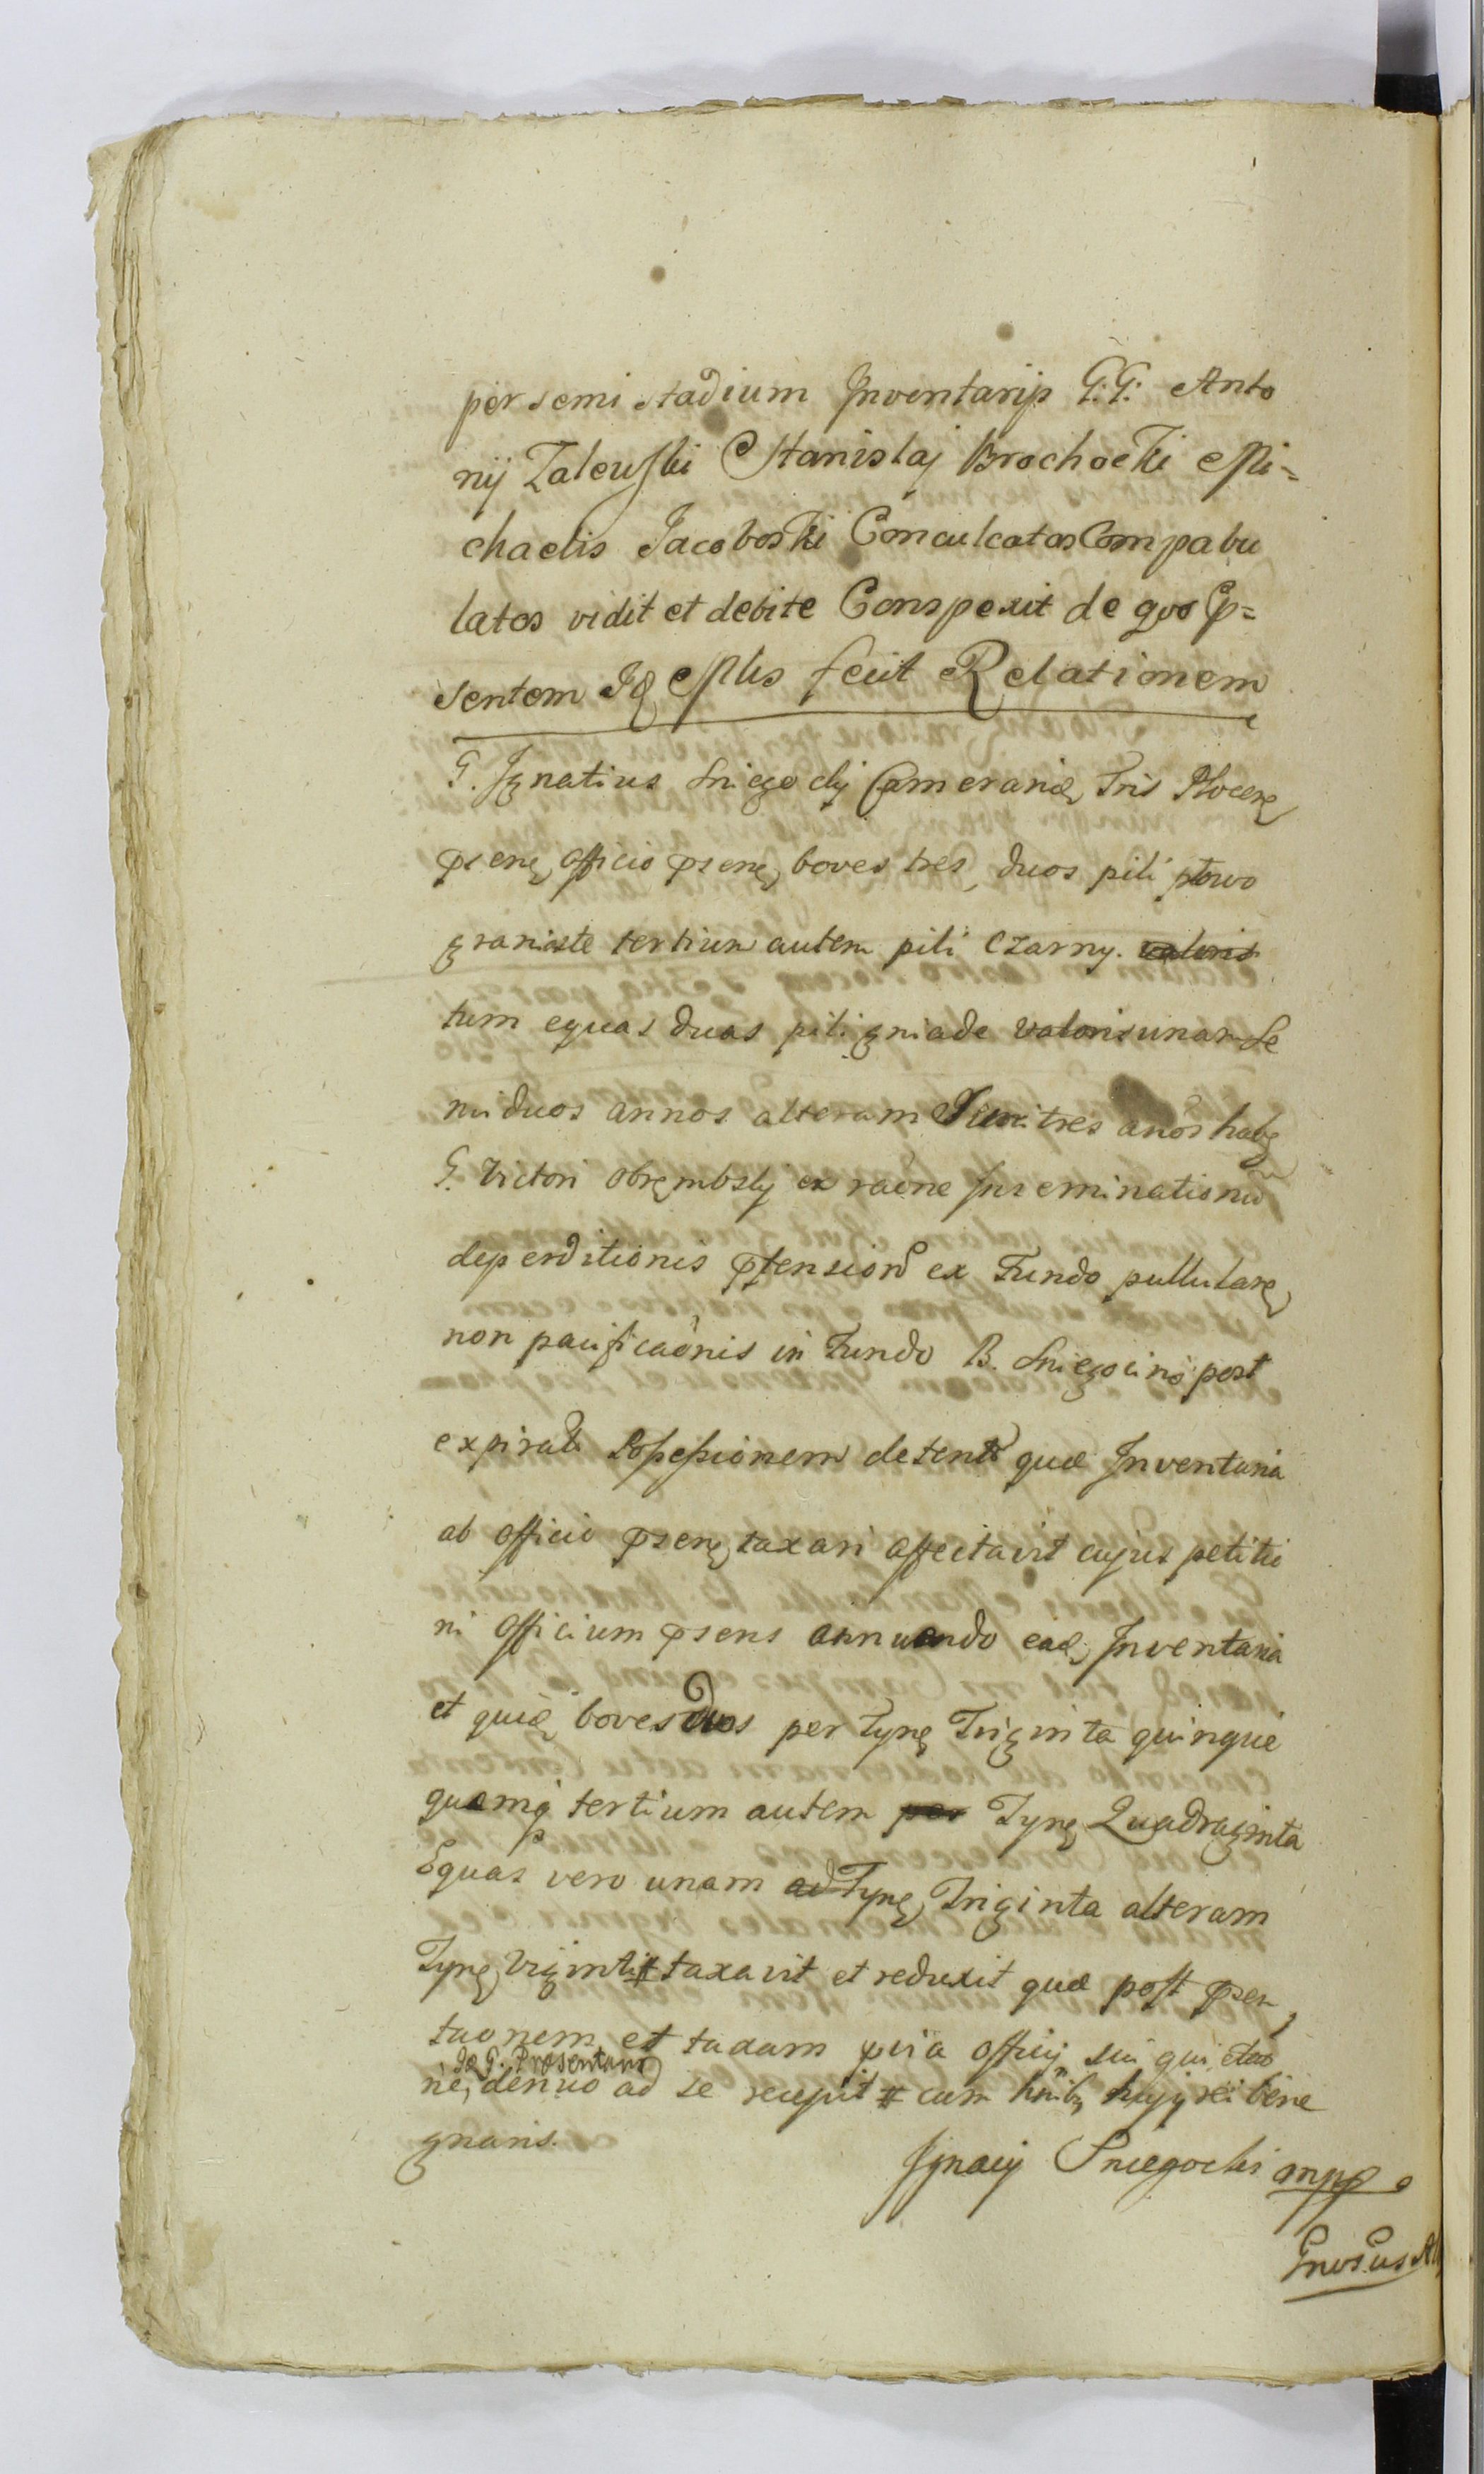 per semi stadium Inventarijs G:G: Anto
nij Zalewski Stanislaj Brochocki Mi=
chaelis Jacoboski Conculcatos Compabu
latos vidit et debite Conspexit de quo P=
sentem Id Mlis fecit Relationem
G. Ignatius Sniegocky Tris Plocen
psene officio psene boves tres, duos pili płowo
graniaste tertium autem pili Czarny. valoris
tum equas duas pili gniade valoris unam Se
mi duos annos alteram Semi tres anos habe
G. Victori Obrembsky ex raone Inseminationis
deperditionis ptension ex Fundo pullulare
non pacificaonis in Fundo B. Sniegocino post
expirat Possessionem detent quæ Inventaria
ab officio psene taxari affectavit cujus petitio
ni Officium psens annuendo ead Inventaria
et quid boves duos per Tyne Triginta quinque
quemq tertium autem per Tyne Quadraginta
Equas vero unam ad Tyne Triginta alteram
Tyne Viginti # taxavit et reduxit quæ post psen
taonem et taxam officij sui
Id G. Præsentans
ne, denuo ad se recepit # cum hnib huj rei bene
gnaris.
Ignacy Sniegocki mpp
Gnosus Al